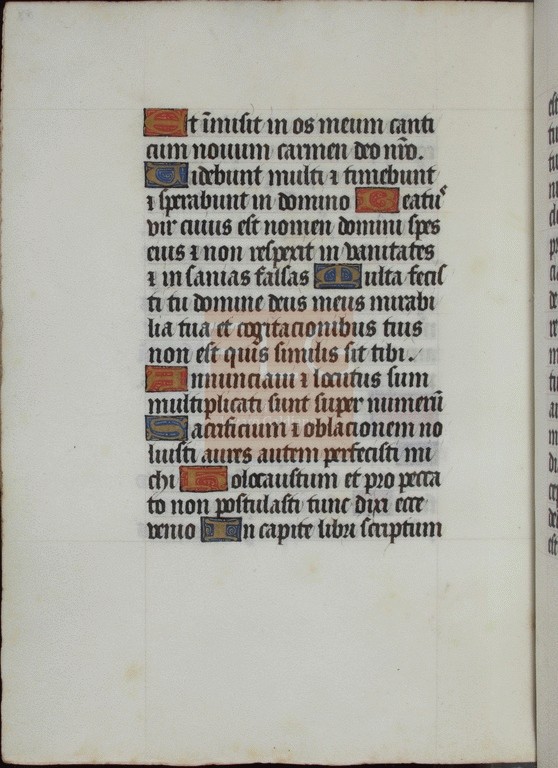 Et īmisit in os meum canti
cum nouum carmen deo nr̄o.
Uidebunt multi ⁊ timebunt
⁊ sperabunt in domino Beatus
vir cuius est nomen domini spes
eius ⁊ non respexit in vanitates
⁊ in sanias falsas Multa fecis
ti tu domine deus meus mirabi
lia tua et cogitacionibus tuis
non est quis similis sit tibi.
Annunciaui ⁊ locutus sum
multiplicati sunt super numerū
Sacrificium ⁊ oblacionem no
luisti aures autem perfecisti mi
chi Holocaustum et pro pecca
to non postulasti tunc dixi ecce
venio In capite libri scriptum